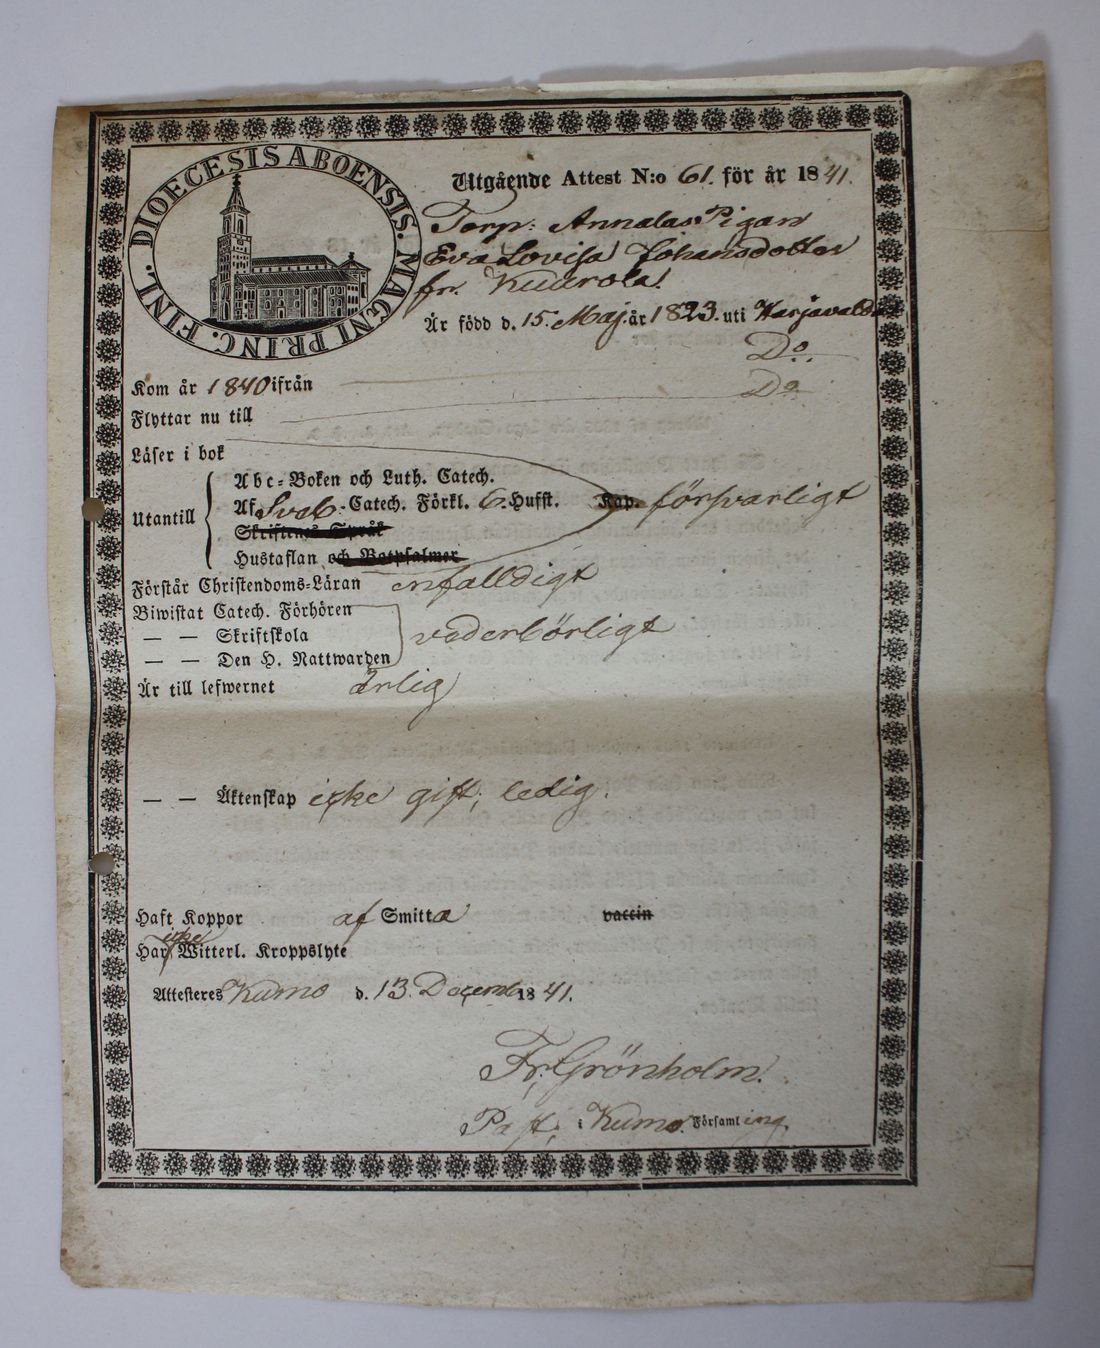 DIOECESIS ABOENSIS. MAGNI PRINC. FINL.
Utgående Attest N:o 61. för år 1841.
Torp: Annalas Pigan
Eva Lovisa Johansdotter
fr. Kuurola.
Är född d. 15. Maj. år 1823. uti Harjavalda
Kom år 1840 ifrån Do.
Flyttar nu till Do
Läser i bok
Utantill
Abc-Boken och Luth. Catech.
Af Sveb.-Catech. Förkl. 6. Hufst. Kap. försvarligt
Skriftenes Språk
Hustaflan och Botpsalmer
Förstår Christendoms-Läran enfalldigt
Biwistat Catech. Förhören
— — Skriftskola vederbörligt
— — Den H. Nattwarden
Är till lefwernet ärlig
— — Äktenskap icke gift; ledig.
Haft Koppor af Smitta vaccin
icke
Har Witterl. Kroppslyte
Attesteres Kumo d. 13. Decemb 1841.
Fr. Grönholm.
Past. i Kumo. Församling.